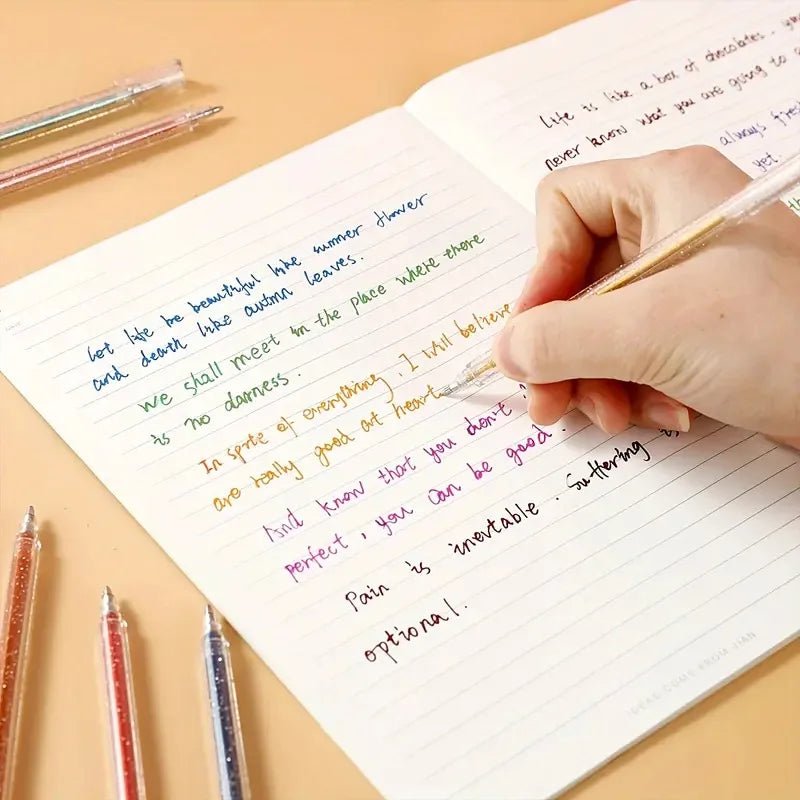 Let life be beautiful like summer flower
and death like autmn leaves.
We shall meet in the place where there
is no darness.
In spite of everything, I will believe
are really good at heart
And know that you don't
perfect, you can be good.
Pain is inevtable. Suffering is
optional.
IDEAS COME FROM JIAN
Life is like a box of chocolates, you
never know what you are going to
always fresh
yet.